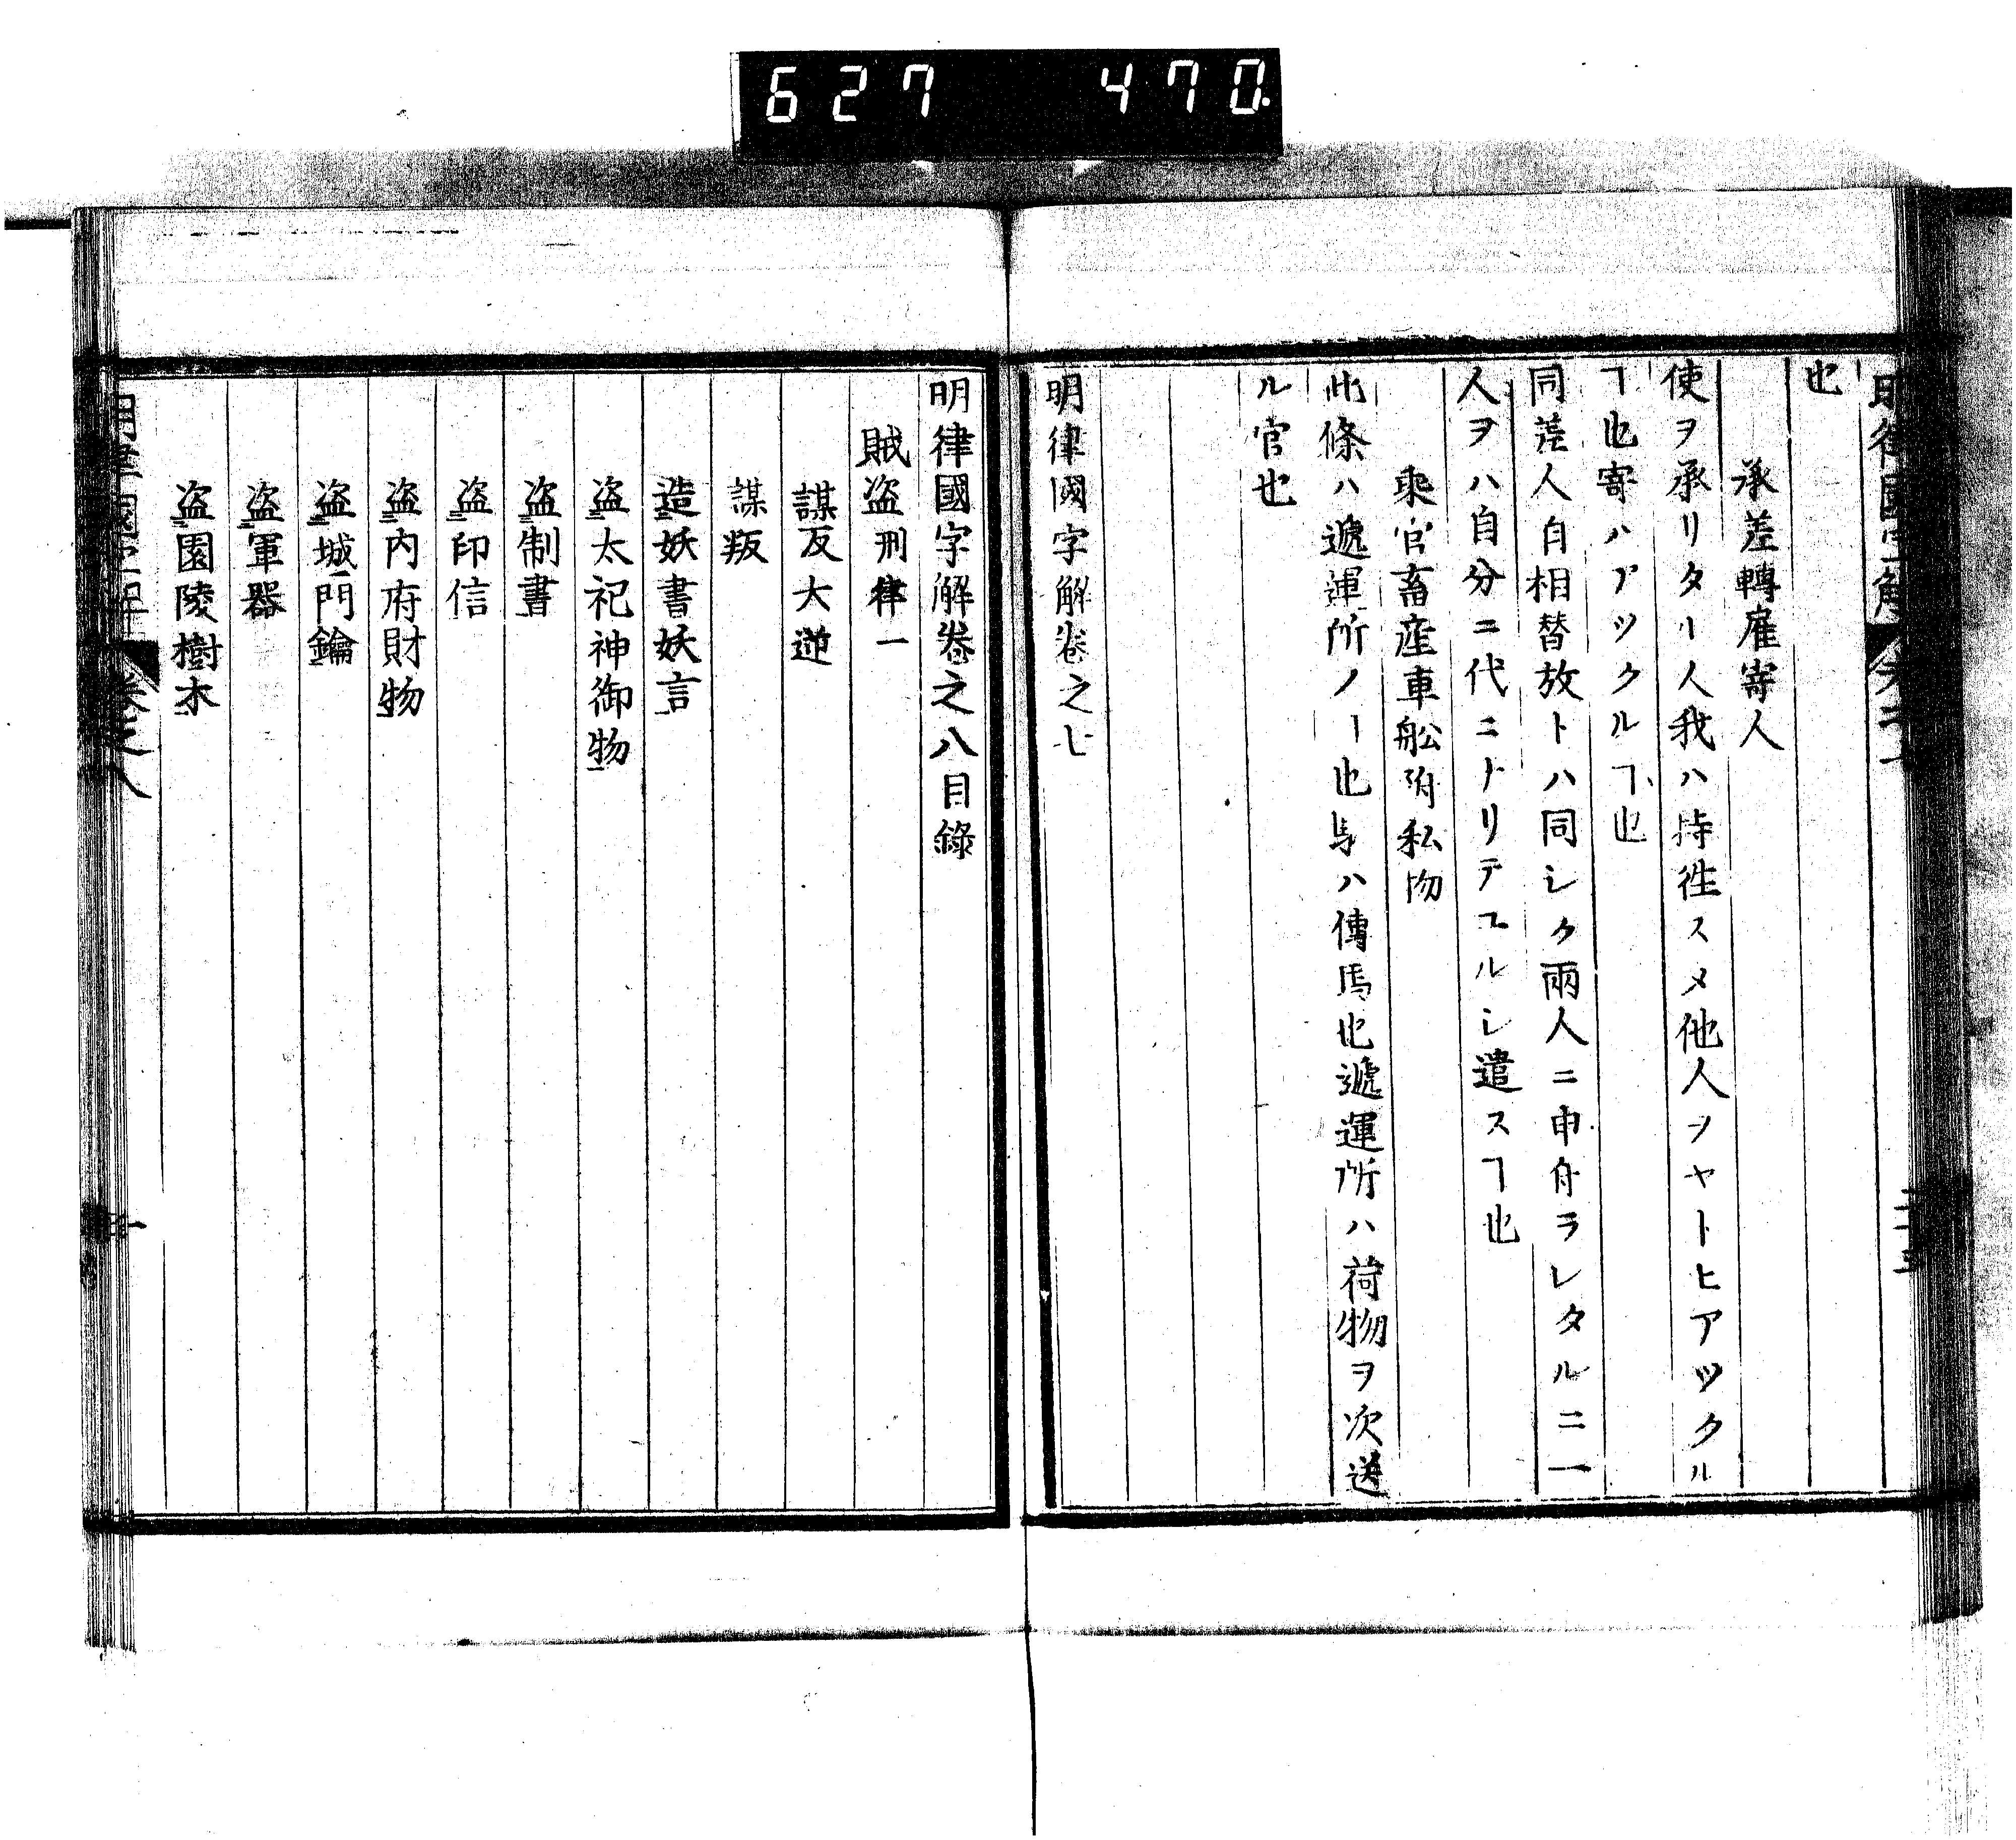 627 470
也
承差轉雇寄人
使ヲ承リタルノ人我ハ持徃スメ他人ヲヤトヒアツクル
ヿ也寄ハアツクルヿ也
同差人自相替放トハ同シク兩人ニ申舟ラレタルニ一
人ヲハ自分ニ代ニナリテユルシ遣スヿ也
乘官畜產車舩附私物
此條ハ遞運所ノヿ也馬ハ傳馬也遞運所ハ荷物ヲ次送
ル官也
明律國字解卷之七
明律國字解卷之八目錄
賊盗刑律一
謀反大逆
謀叛
造妖書妖言
盗大祀神御物
盗制書
盗印信
盗內府財物
盗城門鑰
盗軍器
盗園陵樹木